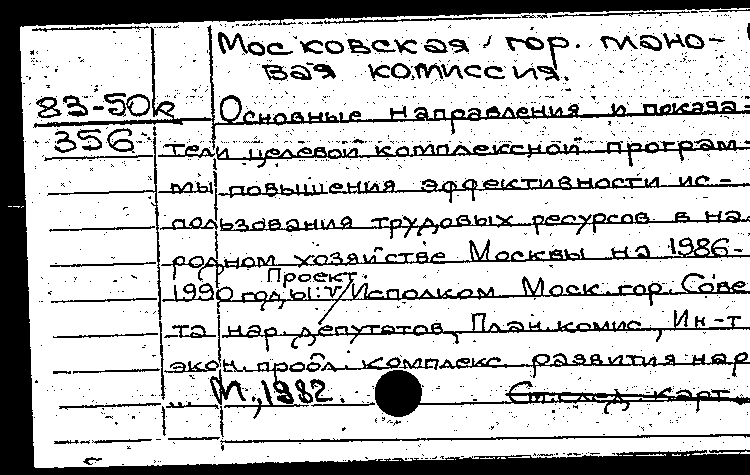 Московская гор. плано-
вая комиссия.
83-50к
356
Основные направления и показа-
тели целевой комплексной програм-
мы повышения эффективности ис-
пользования трудовых ресурсов в на
родном хозяйстве Москвы на 1986-
Проект.
1990 годы: Исполком Моск. гор. Сове
та нар. депутатов, План. комис., Ин-т
экон. пробл. комплекс. развития нар
... М., 1982. См. след. карт.